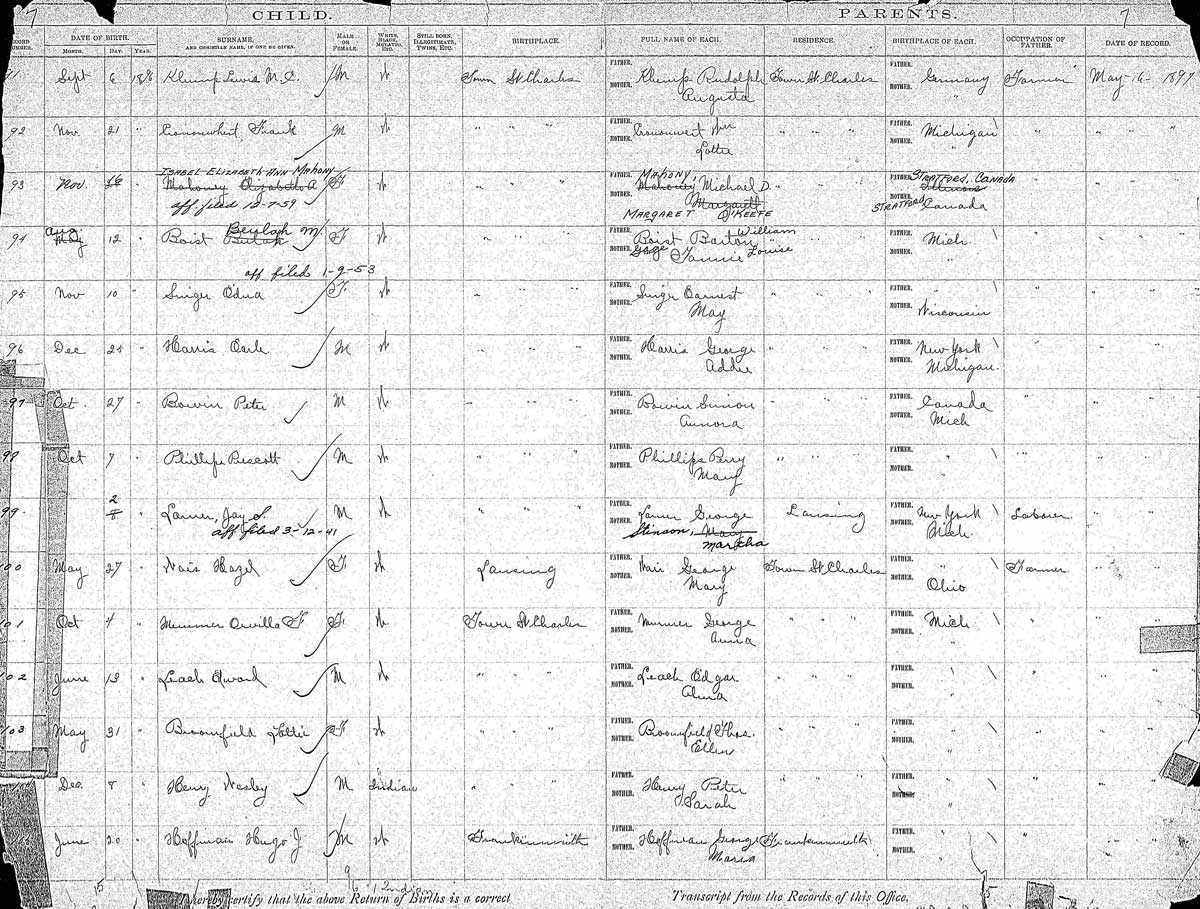 7 CHILD. PARENTS. 7
RECORD NUMBER. DATE OF BIRTH. MONTH. DAY. YEAR. SURNAME, AND CHRISTIAN NAME, IF ONE BE GIVEN. MALE OR FEMALE. WHITE, BLACK, MULATTO, ETC. STILL BORN, ILLEGITIMATE, TWINS, ETC. BIRTHPLACE. FULL NAME OF EACH. RESIDENCE. BIRTHPLACE OF EACH. OCCUPATION OF FATHER. DATE OF RECORD.
91 Sept 6 1896 Klump Lewis M.C. M W Town St Charles FATHER. Klump Rudolph Town St Charles FATHER. Germany Farmer May-16-1897
MOTHER. Augusta MOTHER. "
92 Nov. 21 " Frank M W " " " FATHER. Wm " " " FATHER. Michigan " " " "
MOTHER. Lottie MOTHER. "
ISABEL ELIZABETH ANN MAHONY
93 Nov. 16 " Mahoney Elizabeth A F W " " " FATHER. MAHONY, Mahoney Michael D. " " " FATHER. STRATFORD, CANADA Illinois " " "
aff filed 12-7-59 MOTHER. Margarett MARGARET O'KEEFE MOTHER. STRATFORD Canada
94 Aug May 12 " Boist Beulah Beulah M. F W " " " FATHER. Boist Barton William " " FATHER. Mich " " "
aff filed 1-9-53 MOTHER. Gage Fannie Louise MOTHER. "
95 Nov 10 " Singer Edna F. W " " " FATHER. Singer Earnest " " " FATHER. " " " "
MOTHER. May MOTHER. Wisconsin
96 Dec 25 " Harris Earle M W " " " FATHER. Harris George " " " FATHER. New York " " "
MOTHER. Addie MOTHER. Michigan.
97 Oct 27 " Bowin Peter M W " " " FATHER. Bowin Simon " " " FATHER. Canada " " "
MOTHER. MOTHER. Mich
98 Oct 7 " Phillips Prescott M W " " " FATHER. Phillips Perry " " " FATHER. " " " "
MOTHER. Mary MOTHER. "
99 " 2 8 " Larner, Jay S. M W " " " FATHER. Larner George Lansing FATHER. New York Laborer " "
aff filed 3-12-41 MOTHER. Stinson, Mary Martha MOTHER. Mich.
100 May 27 " Wais Hazel F. W Lansing FATHER. Wais George Town St Charles FATHER. " Farmer " "
MOTHER. Mary MOTHER. Ohio
101 Oct 4 " Mummer Orvilla F F. W Town St Charles FATHER. Mummer George " " " FATHER. Mich " " "
MOTHER. Anna MOTHER. "
102 June 13 " Leach Edward M W " " " FATHER. Leach Edgar " " " FATHER. " " " "
MOTHER. Alma MOTHER. "
103 May 31 " Broomfield Lottie F W " " " FATHER. Broomfield Thos. " " " FATHER. " " " "
MOTHER. Ellen MOTHER. "
Dec. 8 " Henry Wesley M Indian " " FATHER. Henry Peter " " " FATHER. " " " "
MOTHER. Sarah MOTHER. "
June 20 " Hoffman Hugo J. M W Frankinmuth FATHER. Hoffman George Frankenmuth FATHER. " " " "
MOTHER. Maria MOTHER.
15 1 Indian 15
I hereby certify that the above Return of Births is a correct Transcript from the Records of this Office.